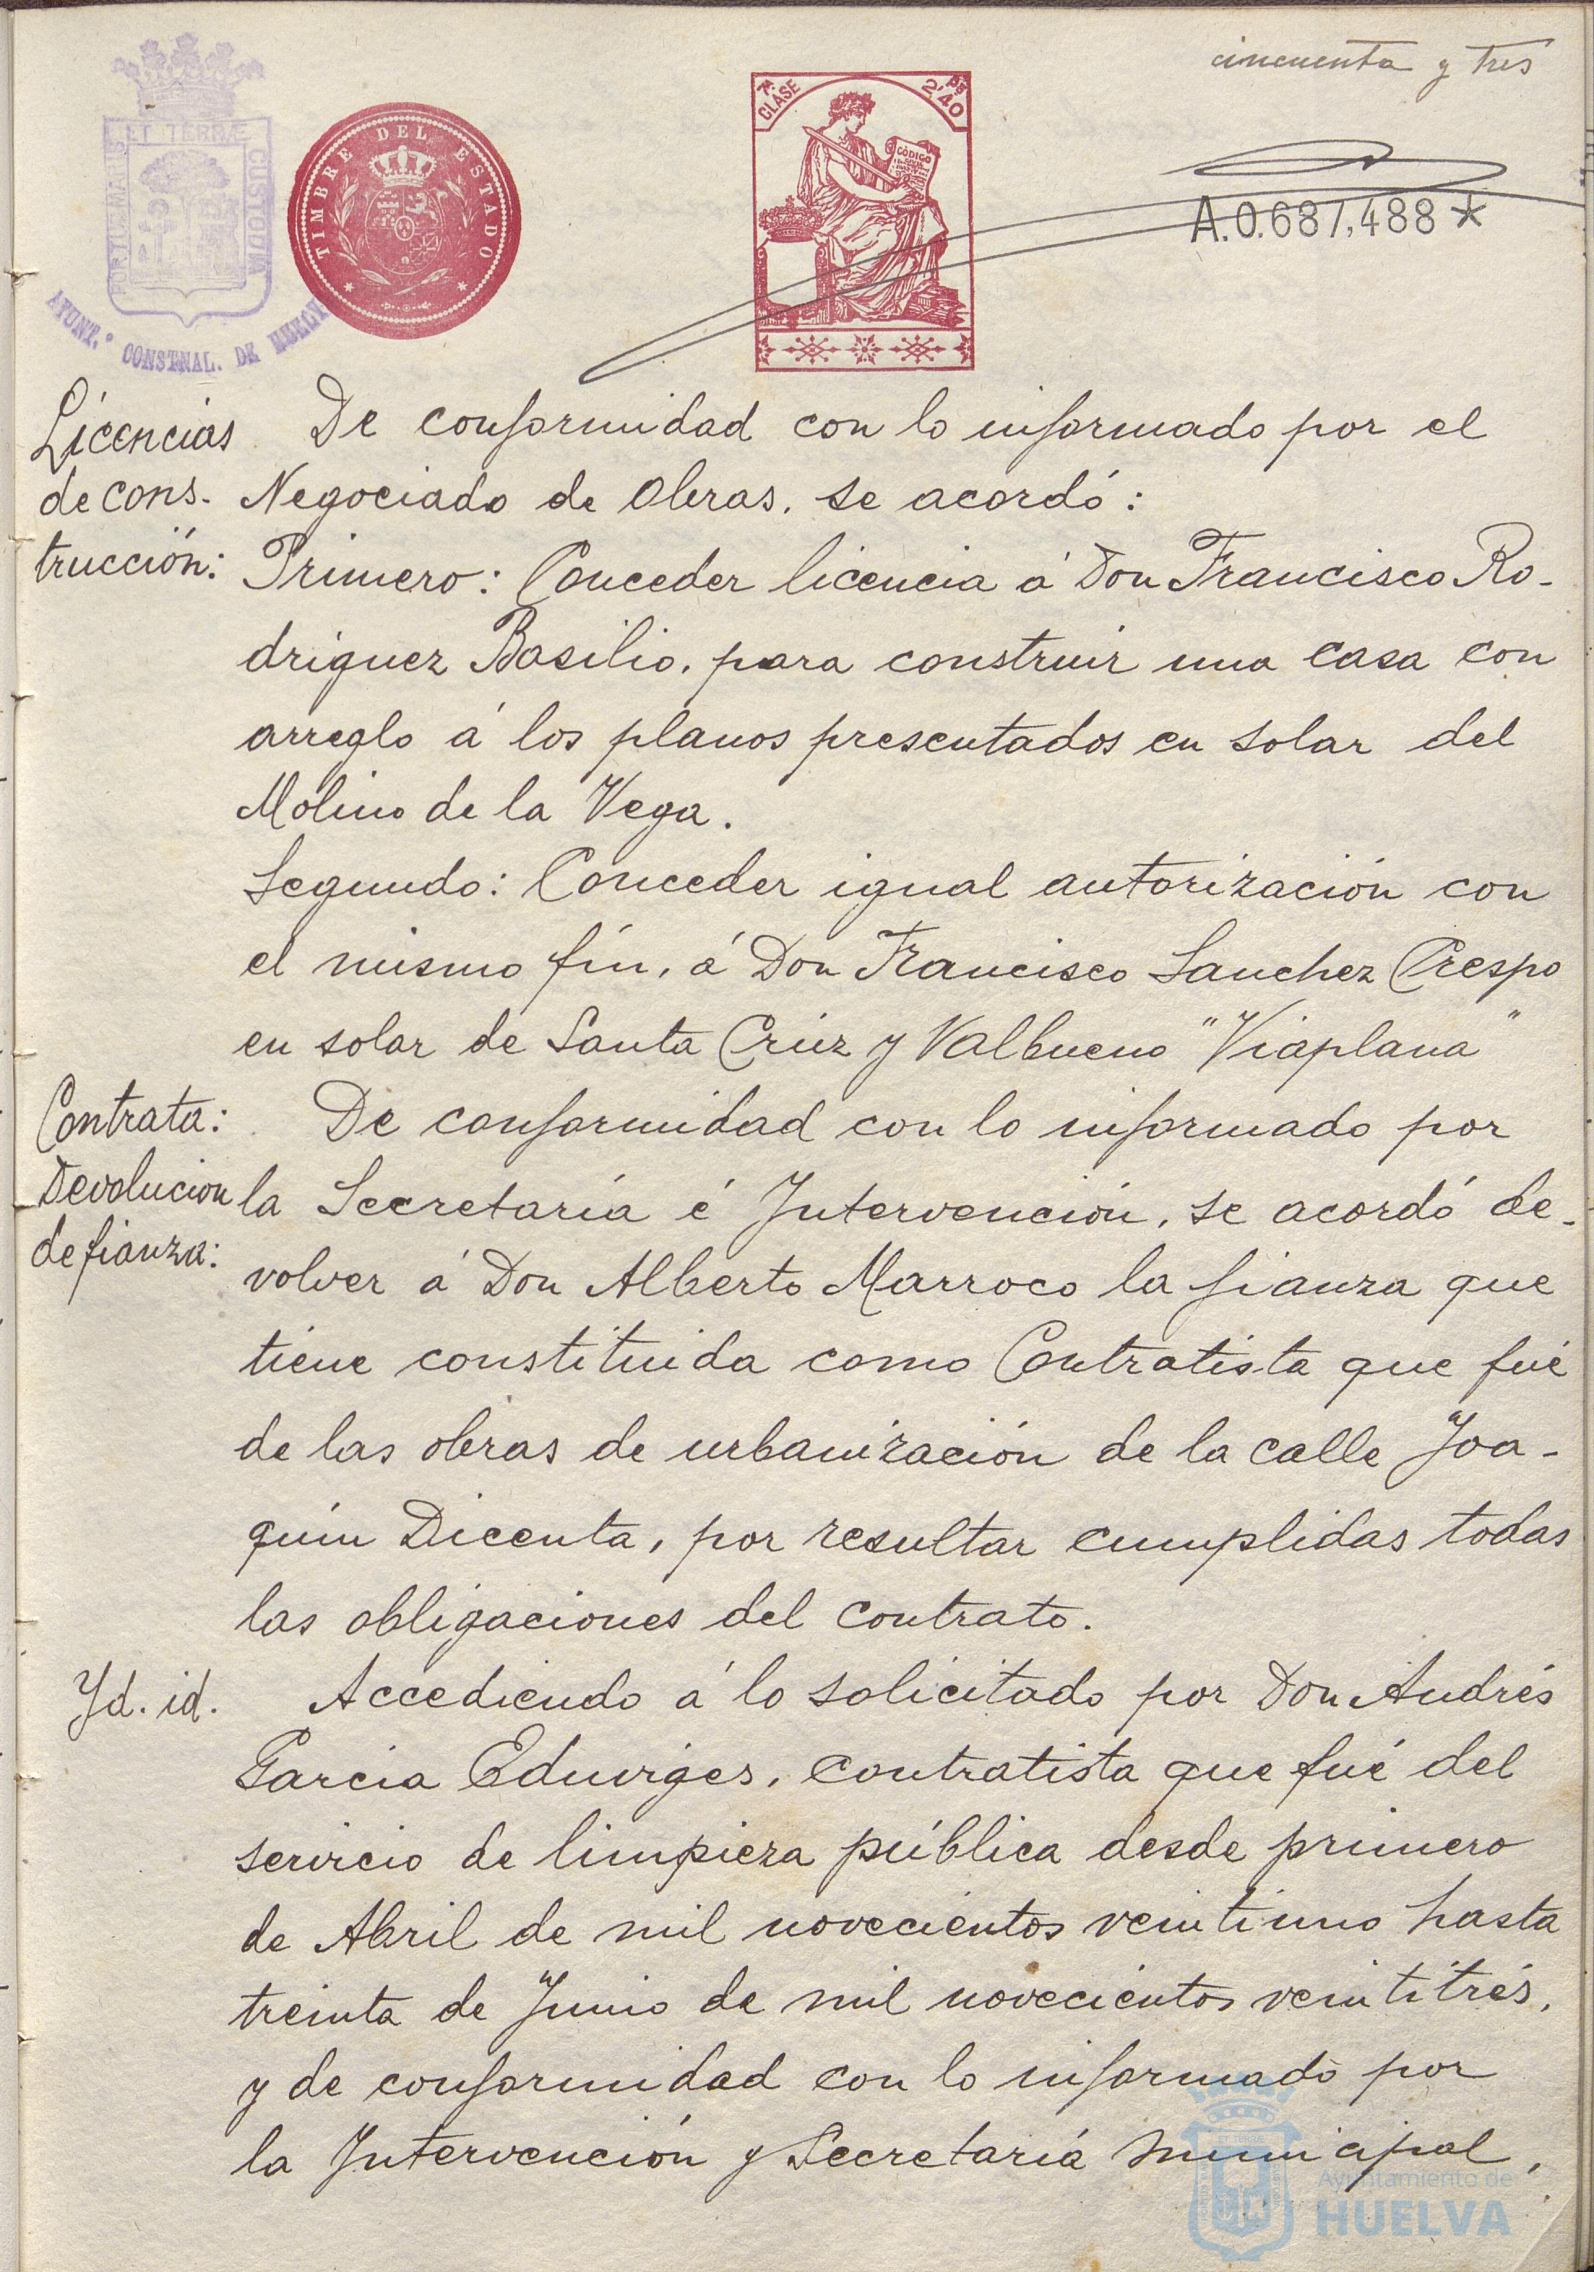 cincuenta y tres
PORTUS MARIS ET TERRÆ CUSTODIA
AYUNT.º CONSTNAL. DE HUELVA
TIMBRE DEL ESTADO
7ª CLASE
2'40 pts
CÓDIGO
A.0.687,488*
Licencias
de cons-
trucción:
De conformidad con lo informado por el
Negociado de Obras, se acordó:
Primero: Conceder licencia á Don Francisco Ro-
driguez Basilio, para construir una casa con
arreglo á los planos presentados en solar del
Molino de la Vega.
Segundo: Conceder igual autorización con
el mismo fín, á Don Francisco Sanchez Crespo
en solar de Santa Crúz y Valbueno "Viaplana"
Contrata:
Devolucion
de fianza:
De conformidad con lo informado por
la Secretaría é Intervención, se acordó de-
volver á Don Alberto Marroco la fianza que
tiene constituida como Contratista que fué
de las obras de urbanización de la calle Joa-
quín Dicenta, por resultar cumplidas todas
las obligaciones del contrato.
Yd. id.
Accediendo á lo solicitado por Don Andrés
Garcia Eduvigés, contratista que fué del
servicio de limpieza pública desde primero
de Abril de mil novecientos veintiuno hasta
treinta de Junio de mil novecientos veintitrés,
y de conformidad con lo informado por
la Intervención y Secretaría municipal,
Ayuntamiento de
HUELVA